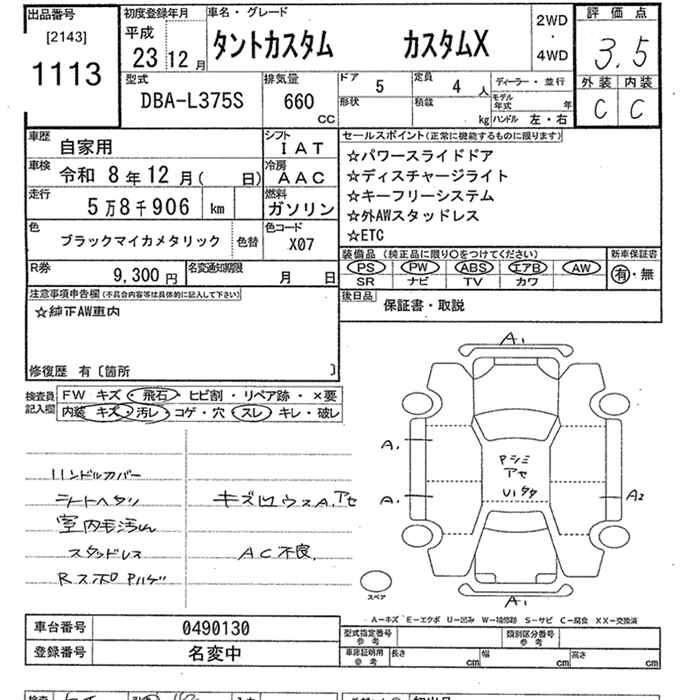 出品番号
[2143]
1113
初度登録年月
平成
23 12 月
車名・グレード
タントカスタム カスタムX
2WD
・
4WD
評価点
3.5
外装 内装
C C
型式
DBA-L375S
排気量
660
CC
ドア 5
定員 4 人
形状
積載 kg
ディーラー・並行
モデル年式 年
ハンドル 左・右
車歴 自家用
シフト
IAT
車検 令和 8年12月( 日)
冷房
AAC
走行 5万8千906 km
燃料
ガソリン
色 ブラックマイカメタリック 色替
色コード
X07
R券 9,300円
名変通知期限 月 日
セールスポイント(正常に機能するものに限ります)
☆パワースライドドア
☆ディスチャージライト
☆キーフリーシステム
☆外AWスタッドレス
☆ETC
装備品(純正品に限り○をつけてください)
新車保証書
PS PW ABS エアB AW
SR ナビ TV カワ
有・無
後日品 保証書・取説
注意事項申告欄(不具合内容等は具体的に記入して下さい)
☆純正AW車内
修復歴 有〔箇所 〕
検査員記入欄
FW キズ・飛石・ヒビ割・リペア跡・×要
内装 キズ・汚レ・コゲ・穴・スレ・キレ・破レ
ハンドルカバー
シートヘタリ
室内毛汚れ
スタッドレス
キズ凹ウスA,アセ
AC不良
A1
A1
A1
A2
A1
Pシミ
アセ
スペア
A-キズ E-エクボ U-凹み W-補修跡 S-サビ C-腐食 XX-交換済
車台番号 0490130
登録番号 名変中
型式指定番号
参考
類別区分番号
参考
車庫証明用
参考
長さ cm
幅 cm
高さ cm